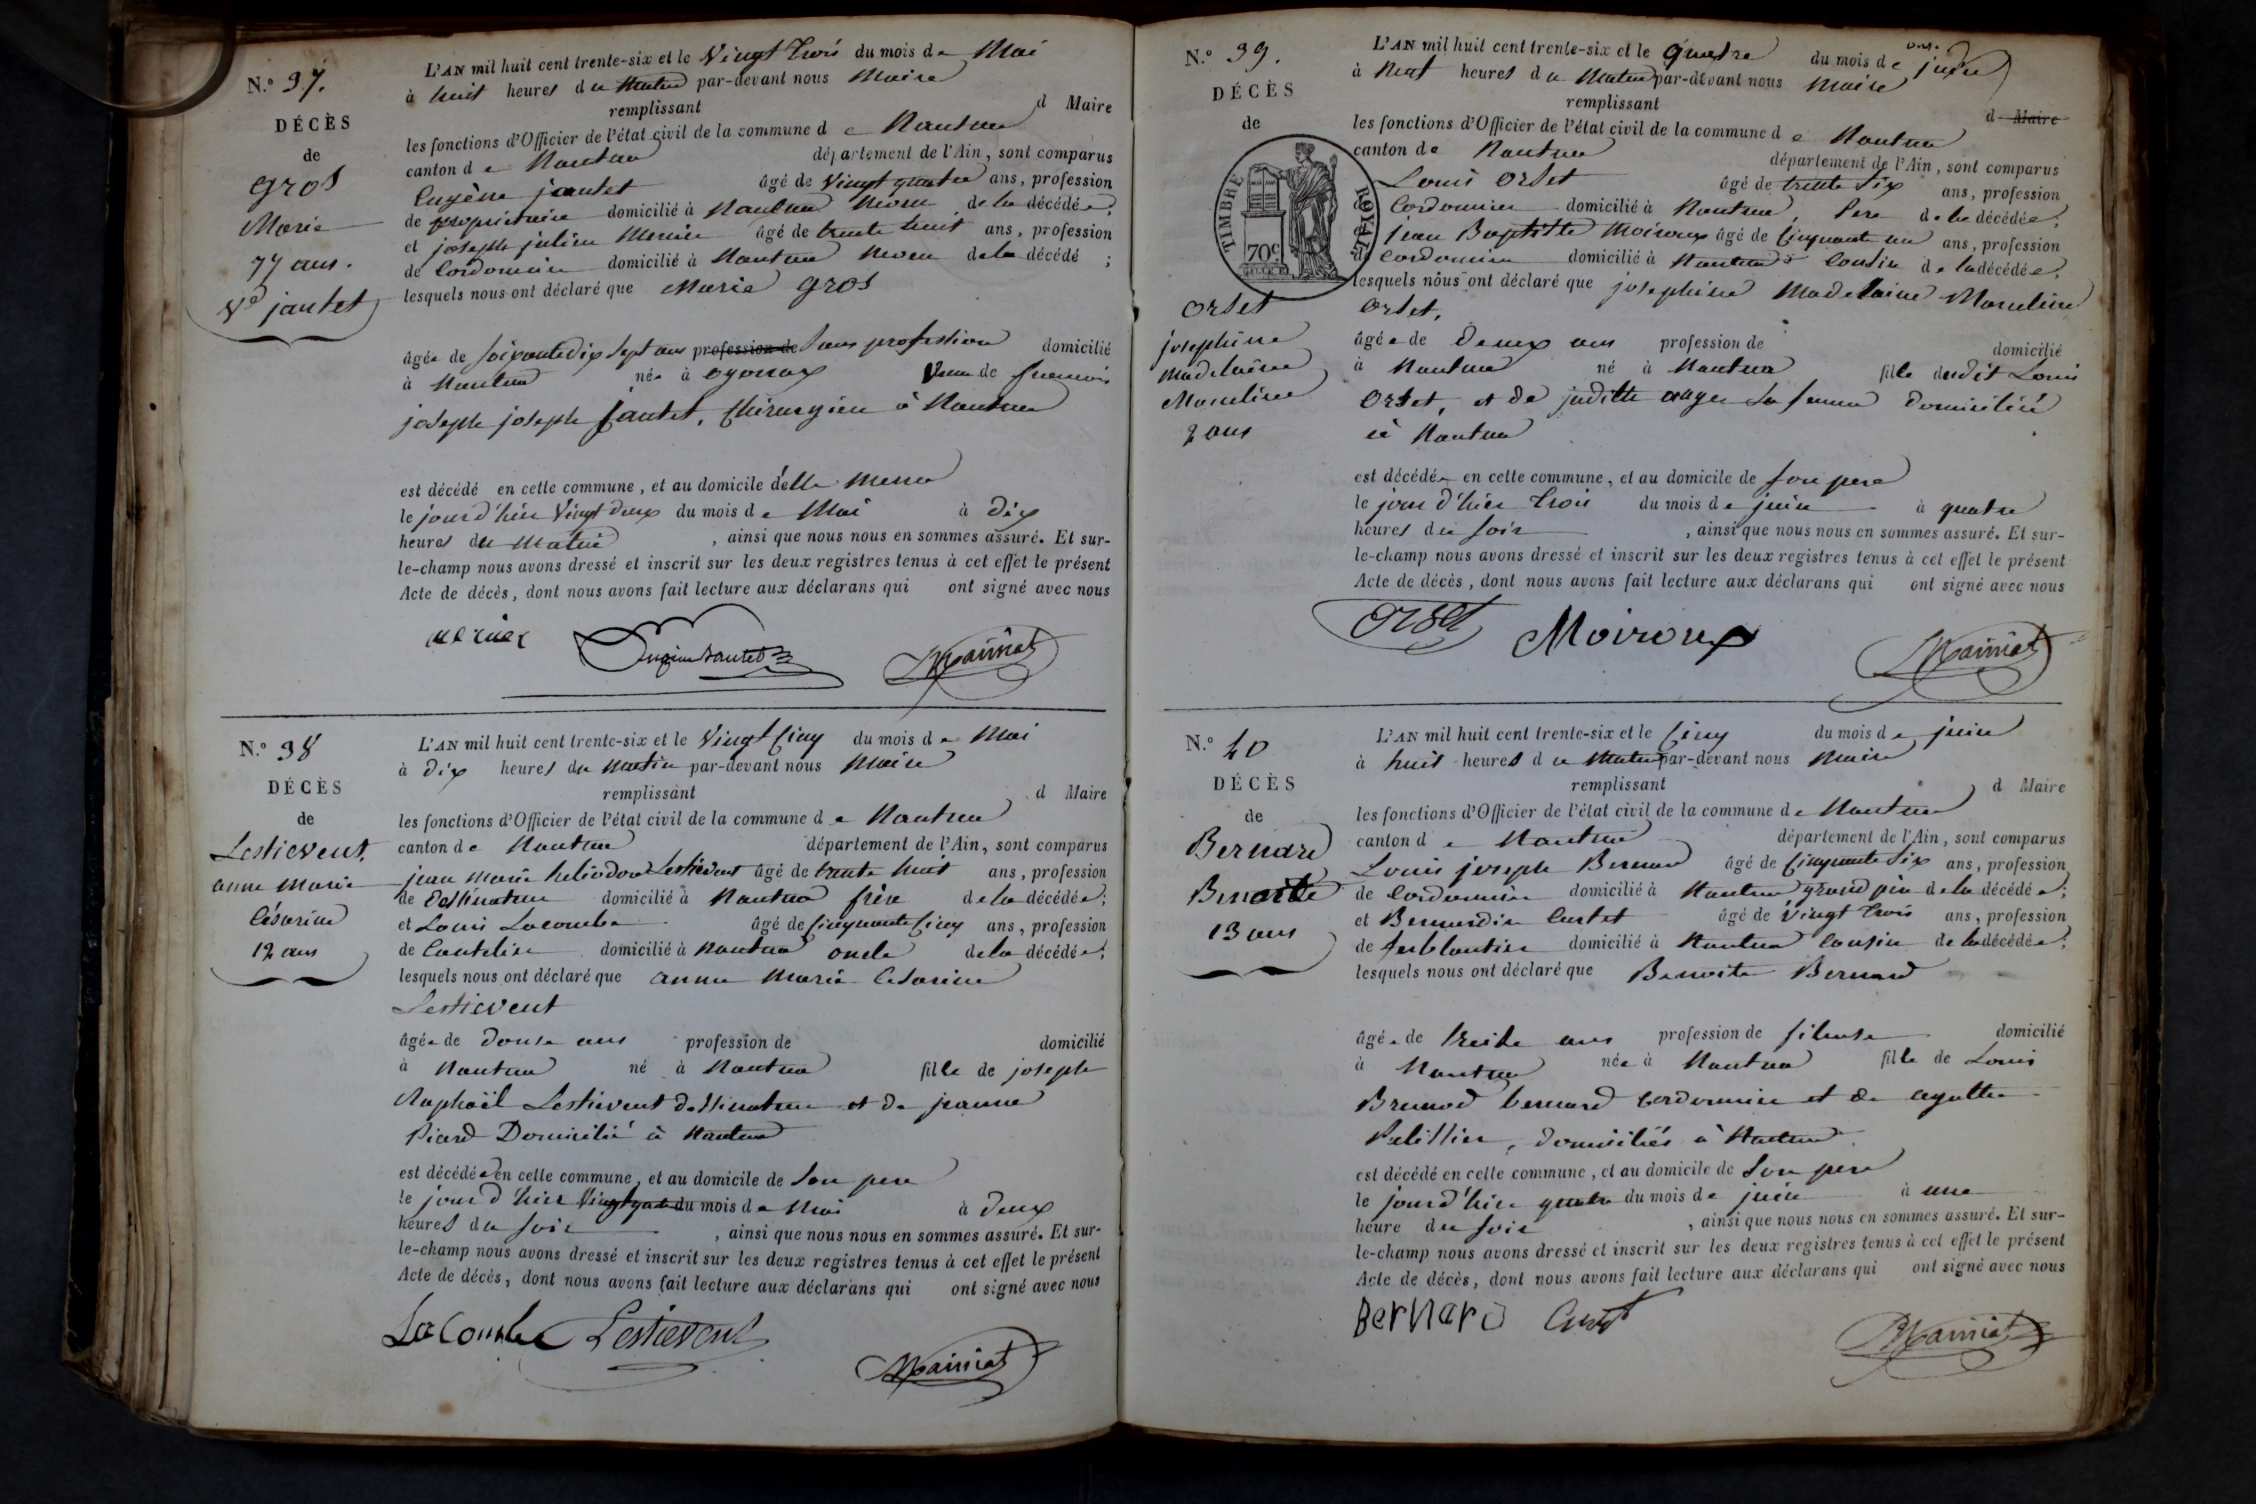 N.º 37.
DÉCÈS
de
Gros
Marie
77 ans.
Ve jantet
L'AN mil huit cent trente-six et le Vingt trois du mois de Mai
à huit heures du Matin par-devant nous Maire
remplissant d Maire
les fonctions d'Officier de l'état civil de la commune de Nantua
canton de Nantua département de l'Ain, sont comparus
Eugène jantet âgé de Vingt quatre ans, profession
de propriétaire domicilié à Nantua neveu de la décédée;
et joseph julien Mercier âgé de trente huit ans, profession
de Cordonnier domicilié à Nantua neveu de la décédé ;
lesquels nous ont déclaré que Marie Gros
âgée de Soixante dix Sept ans profession de Sans profession domicilié
à Nantua née à oyonax Veuve de francois
joseph joseph jantet, Chirurgien à Nantua
est décédé en cette commune, et au domicile d'elle même
le jour d'hier Vingt deux du mois de Mai à dix
heures du Matin , ainsi que nous nous en sommes assuré. Et sur-
le-champ nous avons dressé et inscrit sur les deux registres tenus à cet effet le présent
Acte de décès, dont nous avons fait lecture aux déclarans qui ont signé avec nous
mercier Eugène Jantet
N.º 38
DÉCÈS
de
Lestievent.
anne Marie
Césarine
12 ans
L'AN mil huit cent trente-six et le Vingt Cinq du mois de Mai
à dix heures du Matin par-devant nous Maire
remplissant d Maire
les fonctions d'Officier de l'état civil de la commune de Nantua
canton de Nantua département de l'Ain, sont comparus
jean marie heliodore Lestievent âgé de trente huit ans, profession
de dessinateur domicilié à Nantua frère de la décédée;
et Louis Lacombe âgé de Cinquante Cinq ans, profession
de Coutelier domicilié à Nantua oncle de la décédée;
lesquels nous ont déclaré que anne Marie Césarine
Lestievent
âgée de douse ans profession de domicilié
à Nantua né à Nantua fille de joseph
Raphaël Lestievent dessinateur et de jeanne
Picard Domicilié à Nantua
est décédée en cette commune, et au domicile de Son pere
le jour d'hier Vingt quatre du mois de Mai à deux
heures du Soir , ainsi que nous nous en sommes assuré. Et sur-
le-champ nous avons dressé et inscrit sur les deux registres tenus à cet effet le présent
Acte de décès, dont nous avons fait lecture aux déclarans qui ont signé avec nous
LaCombe Lestievent
N.º 39.
DÉCÈS
de
TIMBRE ROYAL
70 c
Orset
josephine
Madelaine
Marceline
2 ans
L'AN mil huit cent trente-six et le quatre du mois de juin
à Neuf heures du Matin par-devant nous Maire
remplissant d Maire
les fonctions d'Officier de l'état civil de la commune de Nantua
canton de Nantua département de l'Ain, sont comparus
Louis Orset âgé de trente Six ans, profession
Cordonnier domicilié à Nantua, Pere de la décédée;
jean Baptiste Moiroux âgé de Cinquante un ans, profession
de Cordonnier domicilié à Nantua Cousin de la décédée;
lesquels nous ont déclaré que josephine Madelaine Marceline
Orset,
âgée de deux ans profession de domicilié
à Nantua né à Nantua fille dudit Louis
Orset, et de judith auger Sa femme domiciliée
à Nantua
est décédée en cette commune, et au domicile de Son pere
le jour d'hier trois du mois de juin à quatre
heures du Soir , ainsi que nous nous en sommes assuré. Et sur-
le-champ nous avons dressé et inscrit sur les deux registres tenus à cet effet le présent
Acte de décès, dont nous avons fait lecture aux déclarans qui ont signé avec nous
Orset Moiroux
N.º 40
DÉCÈS
de
Bernard
Benoite
13 ans
L'AN mil huit cent trente-six et le Cinq du mois de juin
à huit heures du Matin par-devant nous Maire
remplissant d Maire
les fonctions d'Officier de l'état civil de la commune de Nantua
canton de Nantua département de l'Ain, sont comparus
Louis joseph Bernard âgé de Cinquante Six ans, profession
de Cordonnier domicilié à Nantua grand père de la décédée;
et Bernardin Curtet âgé de Vingt trois ans, profession
de ferblantier domicilié à Nantua Cousin de la décédée;
lesquels nous ont déclaré que Benoite Bernard
âgée de treize ans profession de fileuse domicilié
à Nantua née à Nantua fille de Louis
Bernard Cordonnier et de agathe
Pelissier, domiciliés à Nantua
est décédé en cette commune, et au domicile de Son pere
le jour d'hier quatre du mois de juin à une
heure du Soir , ainsi que nous nous en sommes assuré. Et sur-
le-champ nous avons dressé et inscrit sur les deux registres tenus à cet effet le présent
Acte de décès, dont nous avons fait lecture aux déclarans qui ont signé avec nous
Bernard